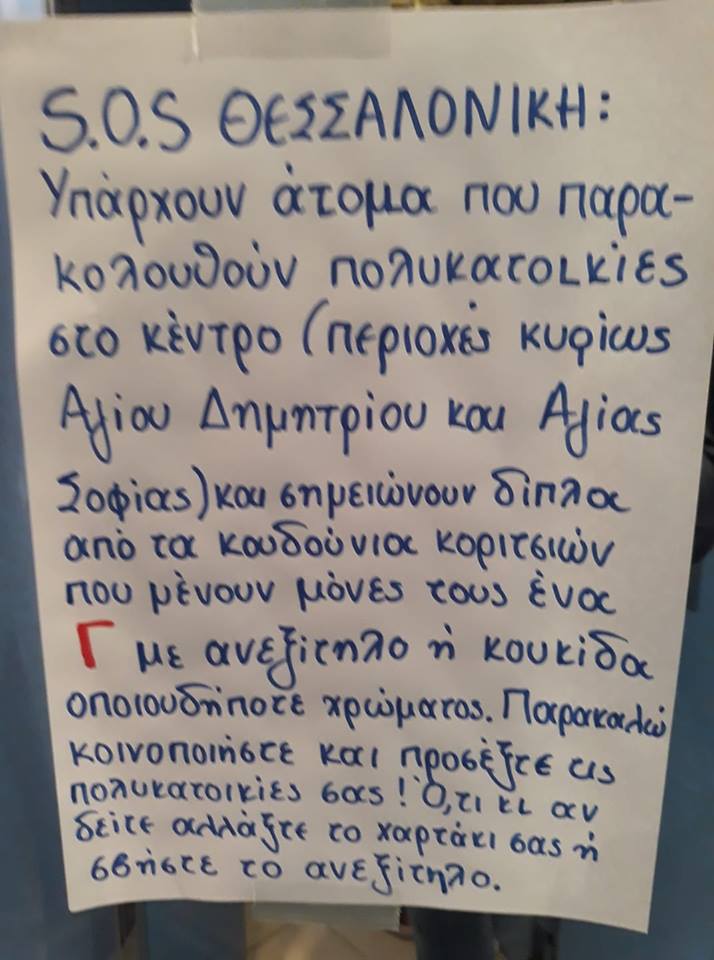 S.O.S ΘΕΣΣΑΛΟΝΙΚΗ:
Υπάρχουν άτομα που παρα-
κολουθούν πολυκατοικίες
στο κέντρο (περιοχές κυρίως
Αγίου Δημητρίου και Αγίας
Σοφίας) και σημειώνουν δίπλα
από τα κουδούνια κοριτσιών
που μένουν μόνες τους ένα
Γ με ανεξίτηλο ή κουκίδα
οποιουδήποτε χρώματος. Παρακαλώ
κοινοποιήστε και προσέξτε τις
πολυκατοικίες σας! Ό,τι κι αν
δείτε αλλάξτε το χαρτάκι σας ή
σβήστε το ανεξίτηλο.